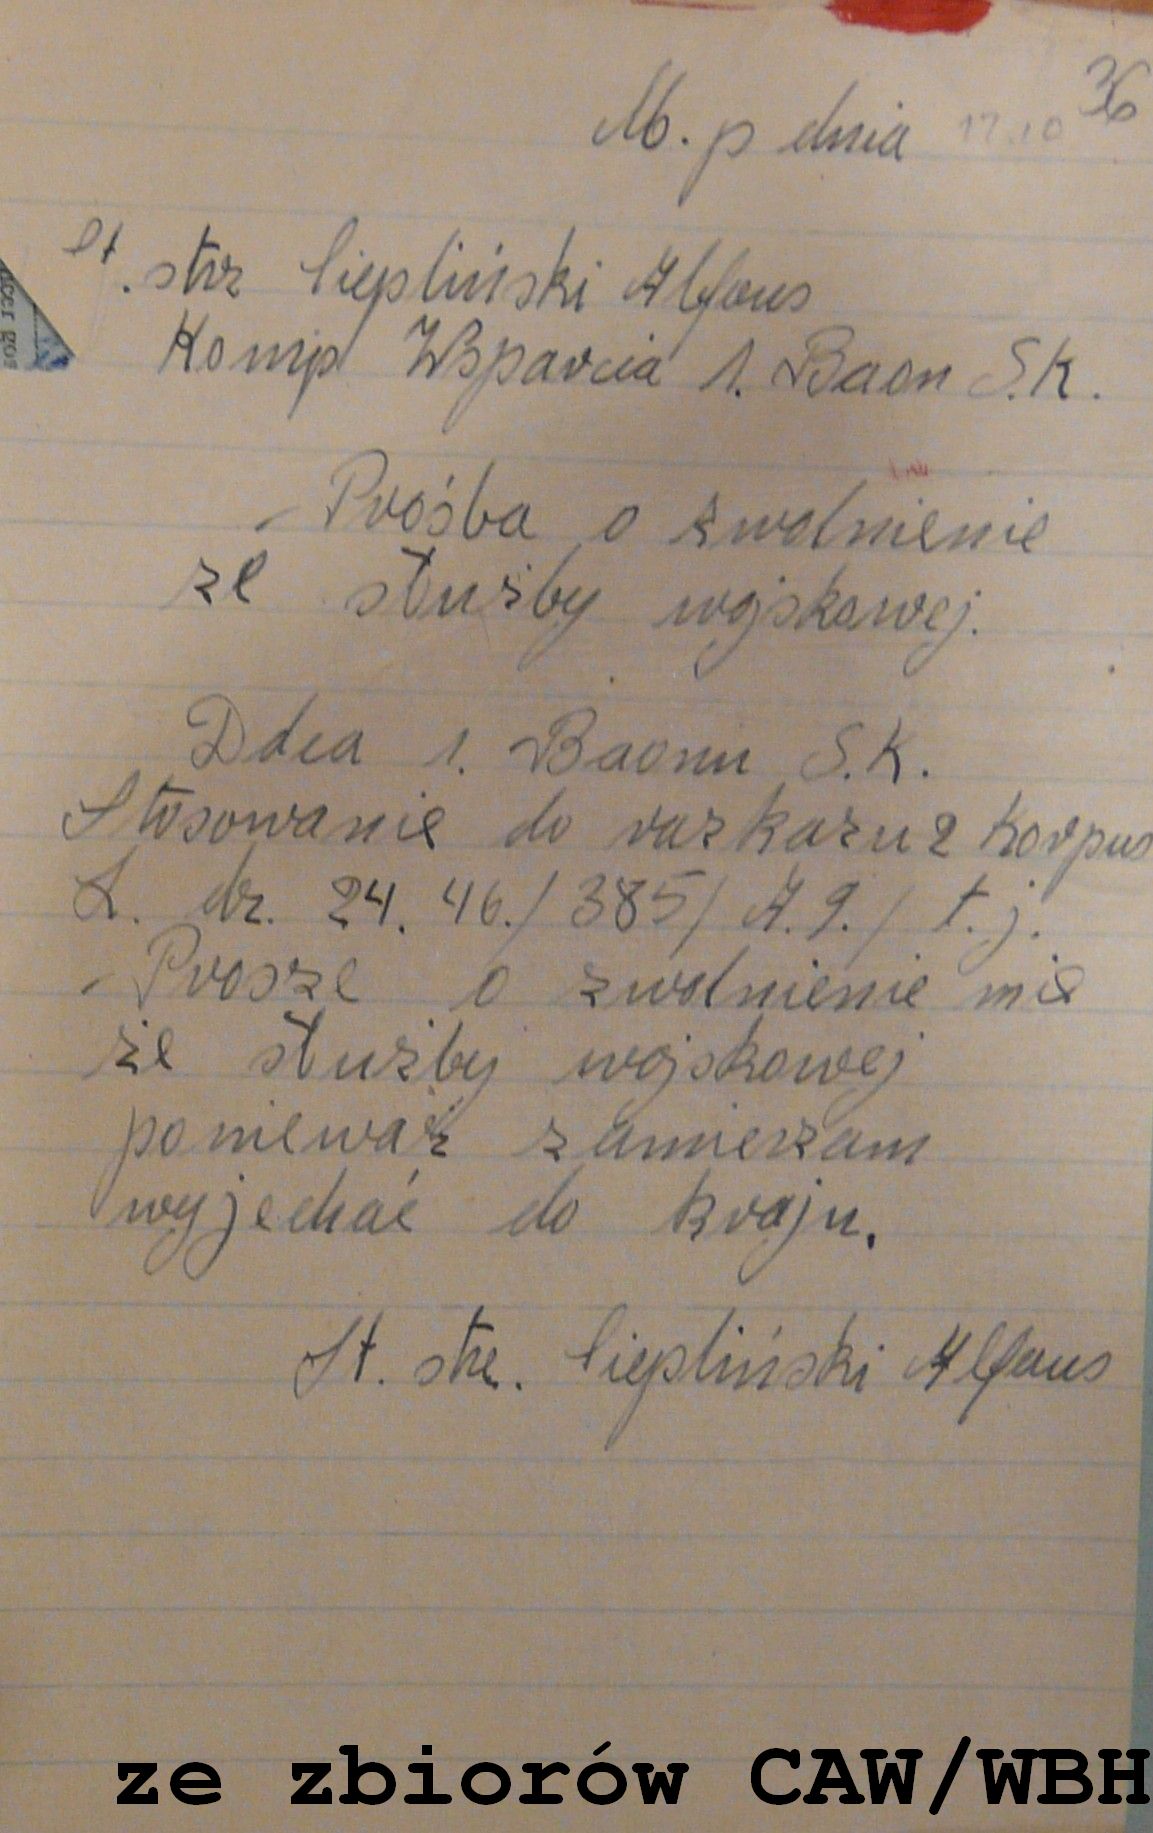 36
M. p dnia 17.10
St. strz Ciepliński Alfons
Komp Wsparcia 1. Baon S.K.
Prośba o zwolnienie
ze służby wojskowej.
Ddca 1. Baonu S.K.
Stosowanie do rozkazu 2 Korpus
L. dz. 24. 46./385/A.g./t.j.
Prosze o zwolnienie mie
ze służby wojskowej
ponieważ zamierzam
wyjechać do kraju.
St. strz. Ciepliński Alfons
ze zbiorów CAW/WBH